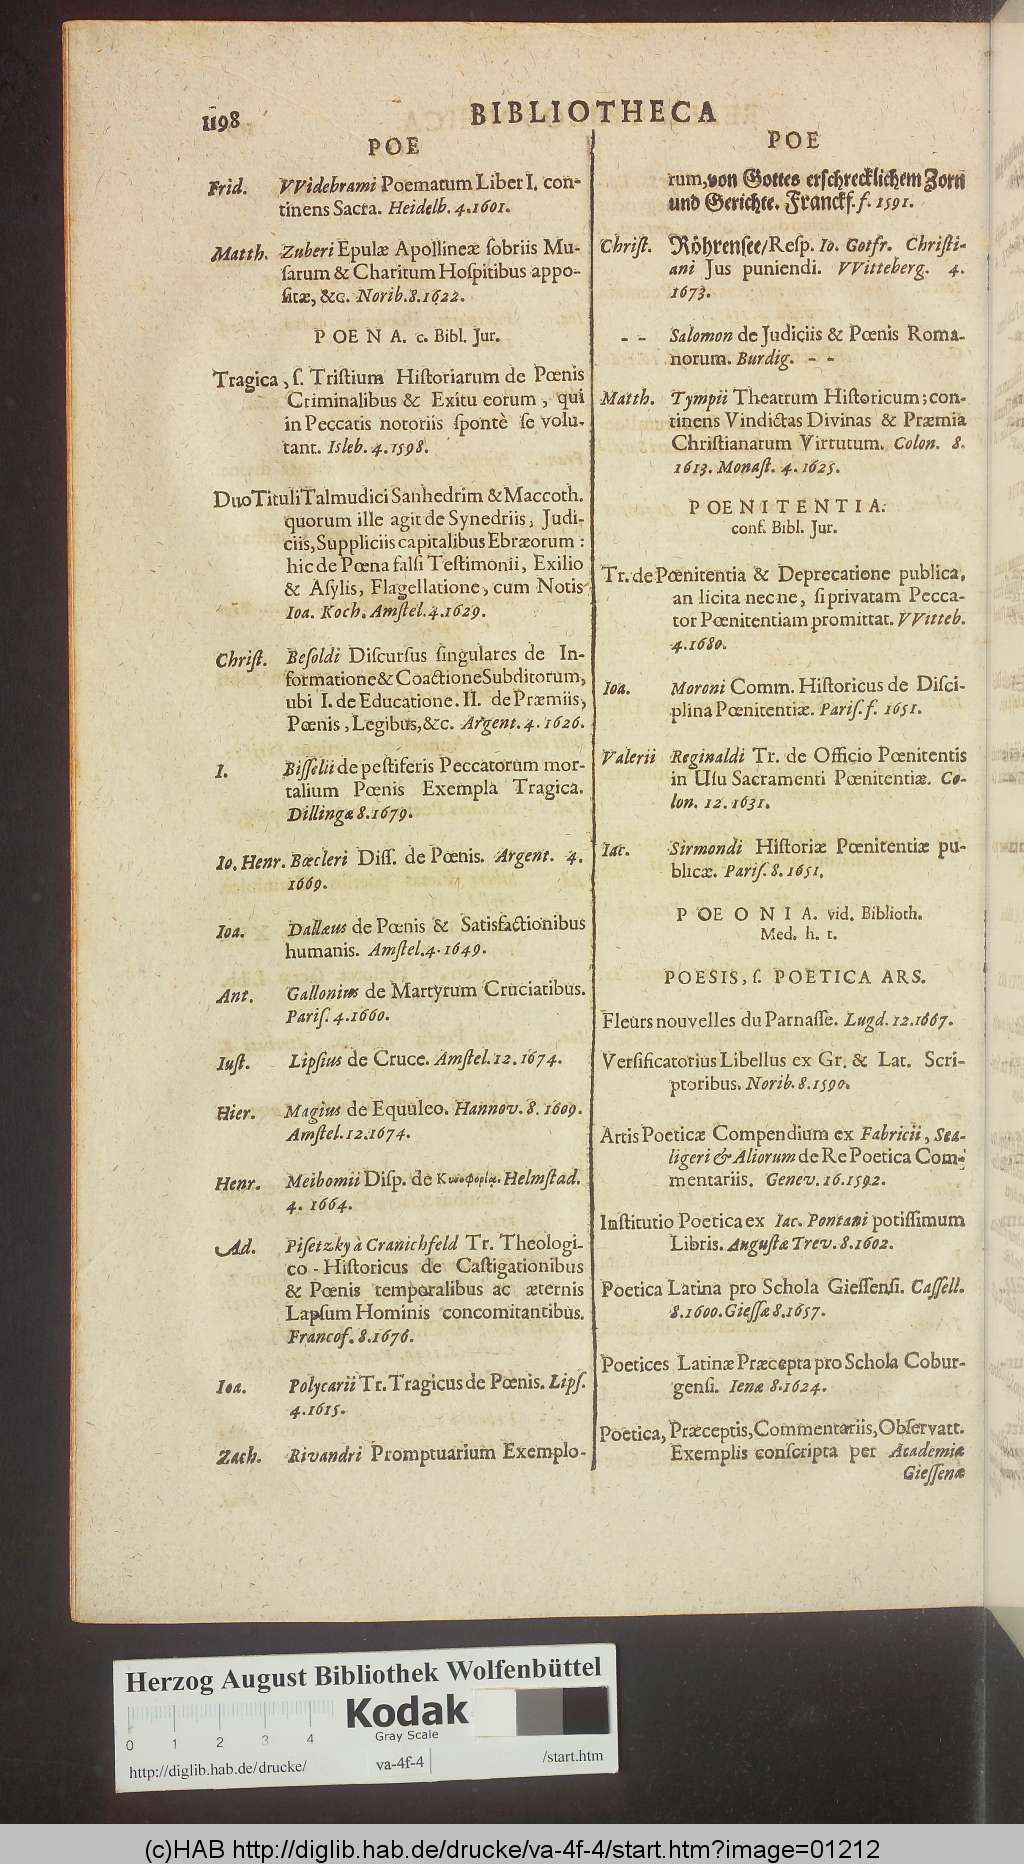 1198
BIBLIOTHECA
POE
Frid. VVidebrami Poematum Liber I. con-
tinens Sacra. Heidelb. 4. 1601.
Matth. Zuberi Epulæ Apollineæ ſobriis Mu-
ſarum & Charitum Hoſpitibus appo-
ſitæ, &c. Norib. 8. 1622.
POENA. c. Bibl. Jur.
Tragica, ſ. Triſtium Hiſtoriarum de Pœnis
Criminalibus & Exitu eorum, qui
in Peccatis notoriis ſpontè ſe volu-
tant. Isleb. 4. 1598.
Duo Tituli Talmudici Sanhedrim & Maccoth.
quorum ille agit de Synedriis, Judi-
ciis, Suppliciis capitalibus Ebræorum:
hic de Pœna falſi Teſtimonii, Exilio
& Aſylis, Flagellatione, cum Notis
Ioa. Koch. Amſtel. 4. 1629.
Chriſt. Beſoldi Diſcurſus ſingulares de In-
formatione & Coactione Subditorum,
ubi I. de Educatione. II. de Præmiis,
Pœnis, Legibus, &c. Argent. 4. 1626.
I. Biſſelii de peſtiferis Peccatorum mor-
talium Pœnis Exempla Tragica.
Dillingæ 8. 1679.
Io. Henr. Bœcleri Diſſ. de Pœnis. Argent. 4.
1669.
Ioa. Dallæus de Pœnis & Satisfactionibus
humanis. Amſtel. 4. 1649.
Ant. Gallonius de Martyrum Cruciatibus.
Pariſ. 4. 1660.
Iuſt. Lipſius de Cruce. Amſtel. 12. 1674.
Hier. Magius de Equuleo. Hannov. 8. 1609.
Amſtel. 12. 1674.
Henr. Meibomii Diſp. de Κυνοφορίας. Helmſtad.
4. 1664.
Ad. Piſetzky à Cranichfeld Tr. Theologi-
co-Hiſtoricus de Caſtigationibus
& Pœnis temporalibus ac æternis
Lapſum Hominis concomitantibus.
Francof. 8. 1676.
Ioa. Polycarii Tr. Tragicus de Pœnis. Lipſ.
4. 1615.
Zach. Rivandri Promptuarium Exemplo-
POE
rum, von Gottes erſchrecklichem Zorn
und Gerichte. Franckf. f. 1591.
Chriſt. Röhrenſee/ Reſp. Io. Gotfr. Chriſti-
ani Jus puniendi. VVitteberg. 4.
1673.
- - Salomon de Judiciis & Pœnis Roma-
norum. Burdig. - -
Matth. Tympii Theatrum Hiſtoricum; con-
tinens Vindictas Divinas & Præmia
Chriſtianarum Virtutum. Colon. 8.
1613. Monaſt. 4. 1625.
POENITENTIA.
conf. Bibl. Jur.
Tr. de Pœnitentia & Deprecatione publica,
an licita necne, ſi privatam Pecca-
tor Pœnitentiam promittat. VVitteb.
4. 1680.
Ioa. Moroni Comm. Hiſtoricus de Diſci-
plina Pœnitentiæ. Pariſ. f. 1651.
Valerii Reginaldi Tr. de Officio Pœnitentis
in Uſu Sacramenti Pœnitentiæ. Co-
lon. 12. 1631.
Iac. Sirmondi Hiſtoriæ Pœnitentiæ pu-
blicæ. Pariſ. 8. 1651.
POEONIA. vid. Biblioth.
Med. h. t.
POESIS, ſ. POETICA ARS.
Fleurs nouvelles du Parnaſſe. Lugd. 12. 1667.
Verſificatorius Libellus ex Gr. & Lat. Scri-
ptoribus. Norib. 8. 1590.
Artis Poeticæ Compendium ex Fabricii, Sca-
ligeri & Aliorum de Re Poetica Com-
mentariis. Genev. 16. 1592.
Inſtitutio Poetica ex Iac. Pontani potiſſimum
Libris. Auguſtæ Trev. 8. 1602.
Poetica Latina pro Schola Gieſſenſi. Caſſell.
8. 1600. Gieſſæ 8. 1657.
Poetices Latinæ Præcepta pro Schola Cobur-
genſi. Ienæ 8. 1624.
Poetica, Præceptis, Commentariis, Obſervatt.
Exemplis conſcripta per Academiæ
Gieſſenæ
Herzog August Bibliothek Wolfenbüttel
Kodak
Gray Scale
0 1 2 3 4
http://diglib.hab.de/drucke/ va-4f-4 /start.htm
(c)HAB http://diglib.hab.de/drucke/va-4f-4/start.htm?image=01212